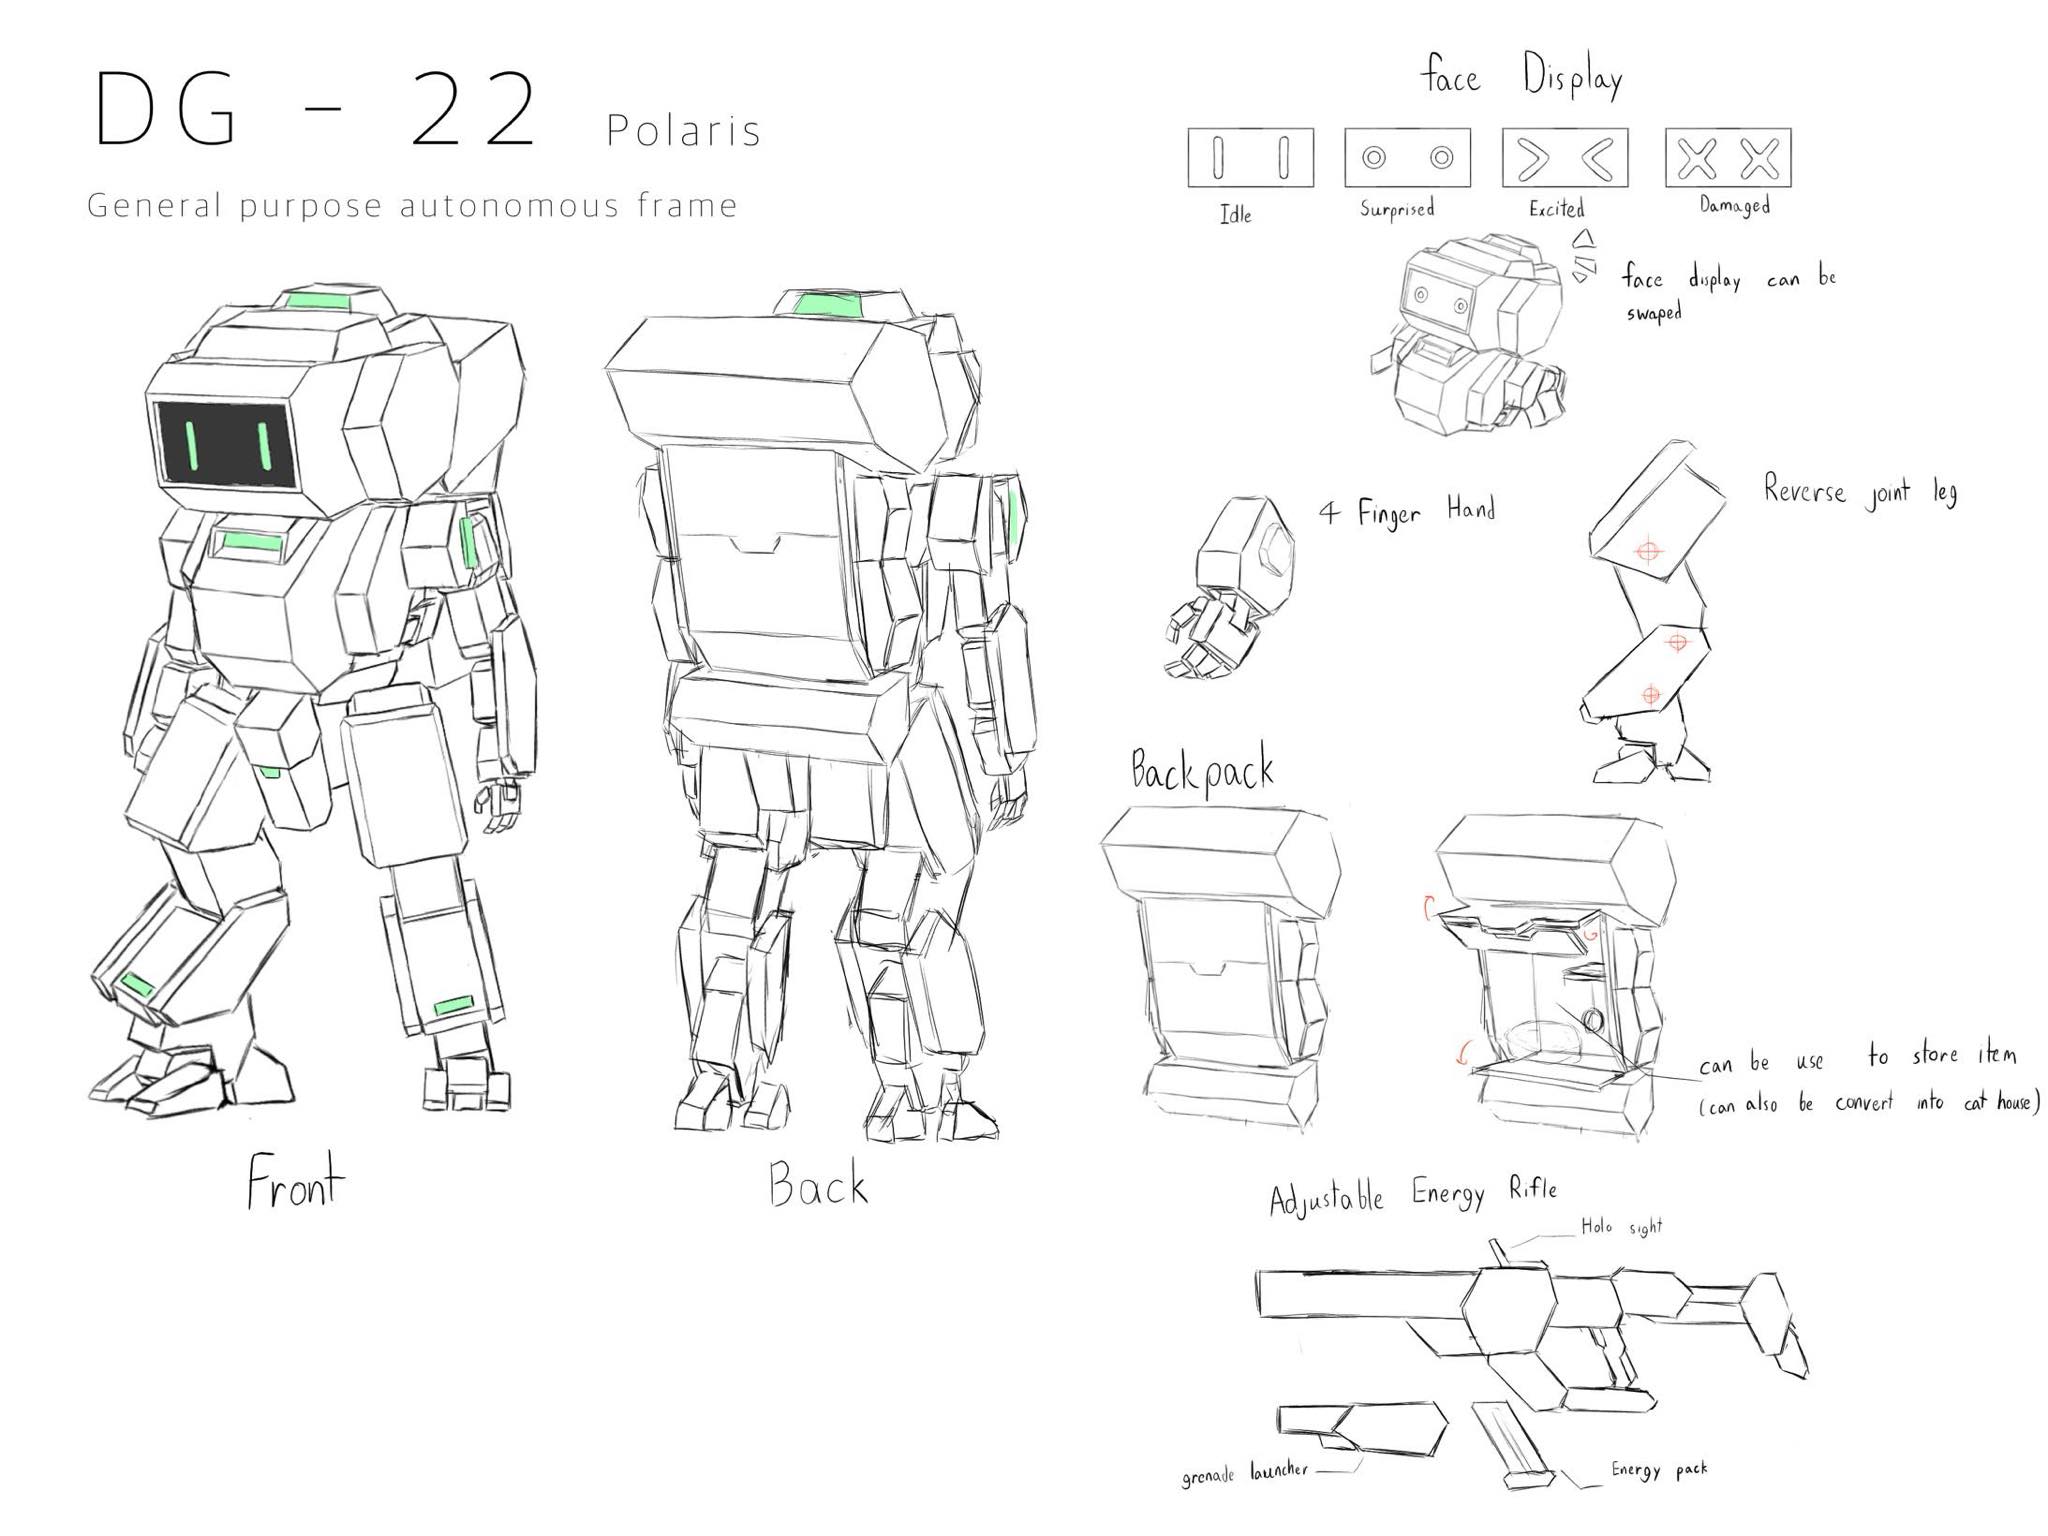 DG - 22 Polaris
General purpose autonomous frame
face Display
Idle
Surprised
Excited
Damaged
face display can be
swaped
4 Finger Hand
Reverse joint leg
Backpack
can be use to store item
(can also be convert into cat house)
Front
Back
Adjustable Energy Rifle
Holo sight
grenade launcher
Energy pack